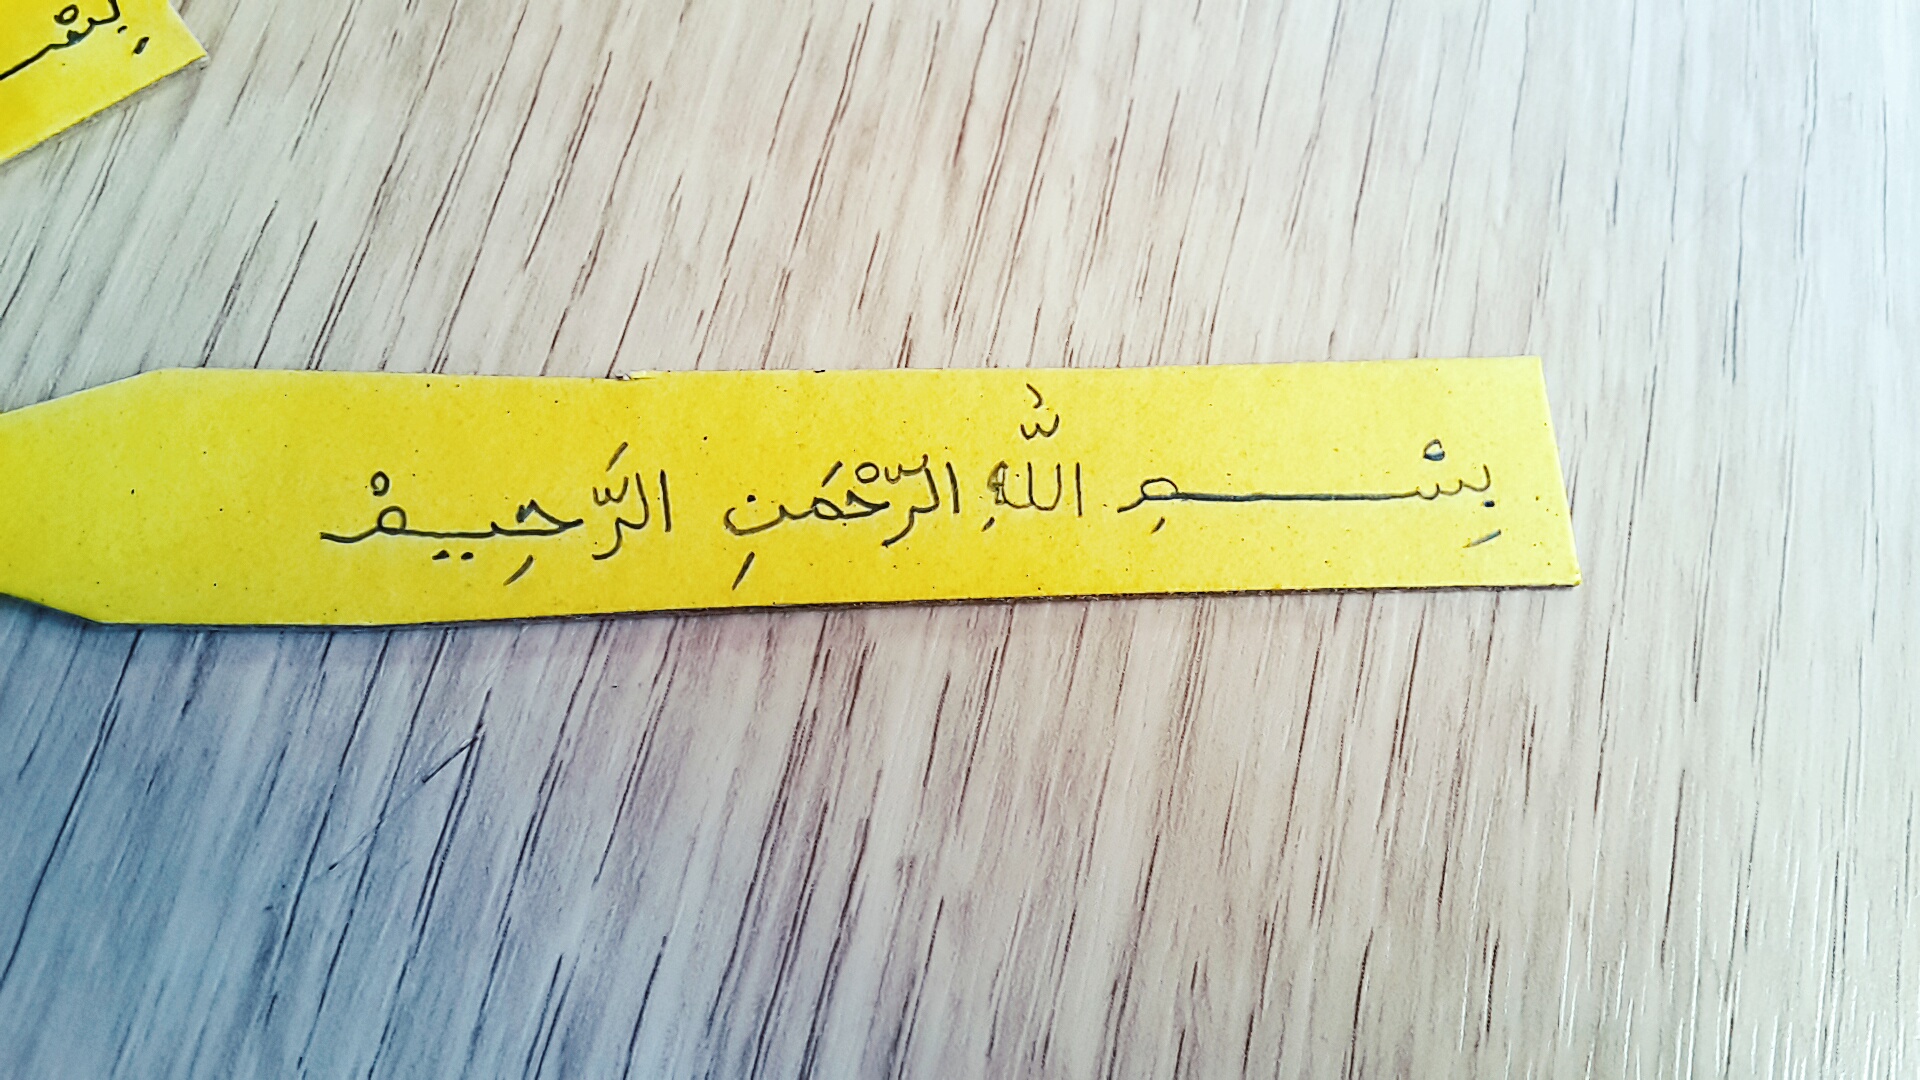 بِسْــــــــمِ اللّٰهِ الرَّحْمَنِ الرَّحِيـمْ